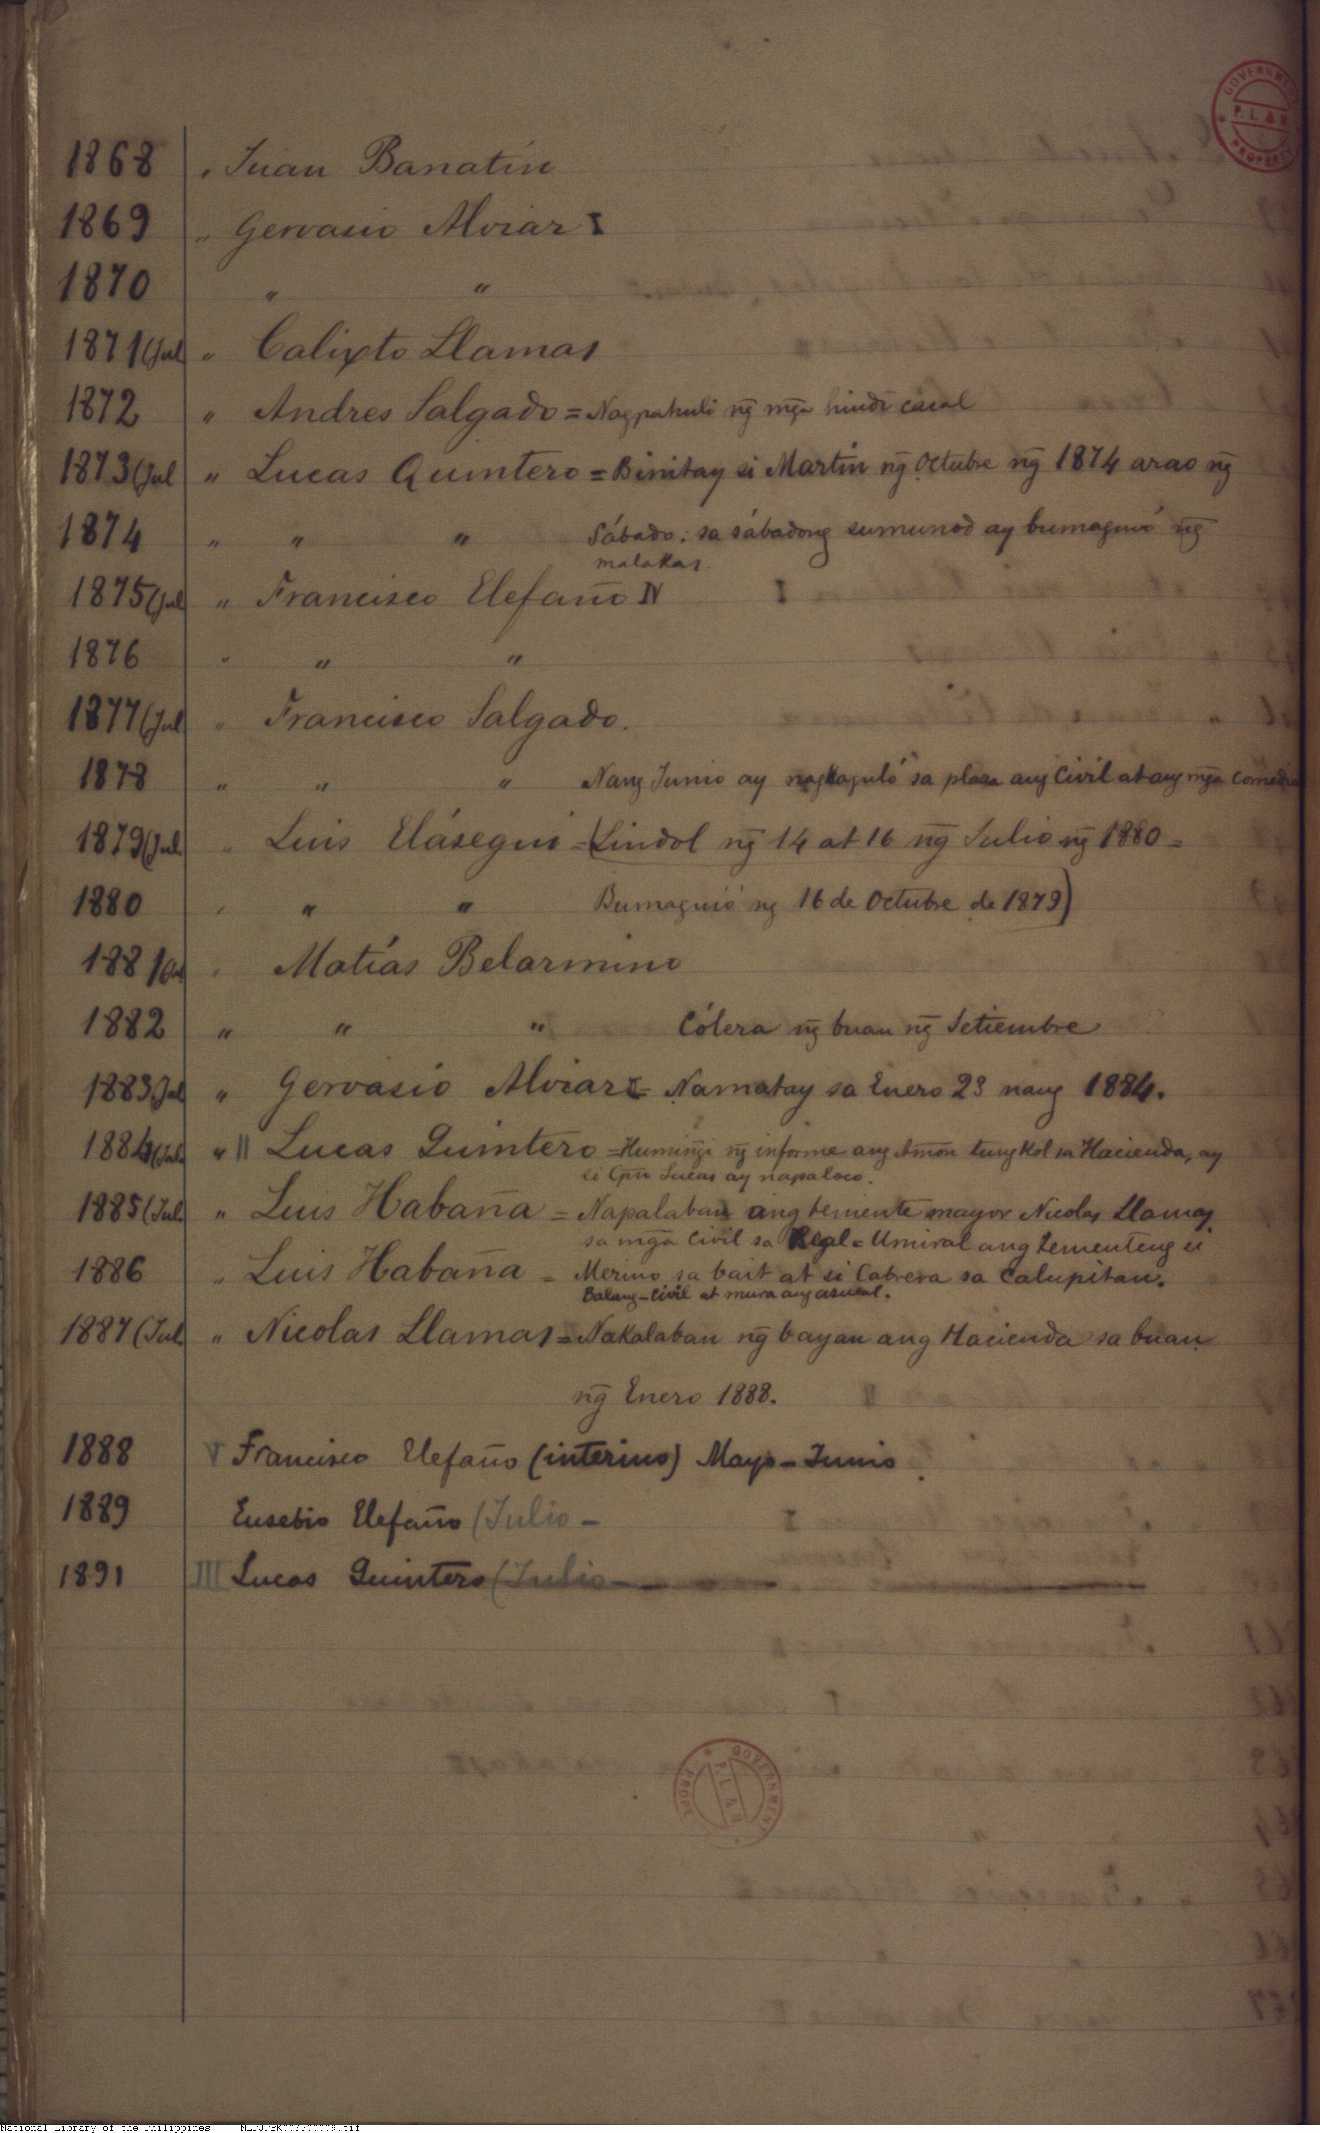 GOVERNMENT P. L. & M. PROPERTY
1868 " Juan Banatin
1869 " Gervasio Alviar I
1870 " "
1871 (Jul " Calixto Llamas
1872 " Andres Salgado = Nagpahuli ng̃ mg̃a hindi casal
1873 (Jul " Lucas Quintero = Binitay si Martin ng̃ Octubre ng̃ 1874 arao ng̃
1874 " " " Sábado: sa sábadong sumunod ay bumaguió ng̃
malakas.
1875 (Jul " Francisco Elefaño IV
1876 " " "
1877 (Jul " Francisco Salgado.
1878 " " " Nang Junio ay nagkaguló sa plaza ang Civil at ang mg̃a
1879 (Jul " Luis Elásegui = (Lindol ng̃ 14 at 16 ng̃ Julio ng̃ 1880 =
1880 " " " Bumaguió ng 16 de Octubre de 1879)
1881 " Matías Belarmino
1882 " " " Cólera ng̃ buan ng̃ Setiembre
1883 Jul " Gervasio Alviar I = Namatay sa Enero 23 nang 1884.
1884 (Jul " II Lucas Quintero = Huming̃i ng̃ informe ang tungkol sa Hacienda, ay
si Cpn Lucas ay napaloco.
1885 (Jul. " Luis Habaña = Napalaban ang teniente mayor Nicolas Llamas
sa mg̃a Civil sa Real = Umiral ang tenienteng si
1886 " Luis Habaña = Merino sa bait at si Cabrera sa Calupitan.
Balang-Civil at mura ang asucal.
1887 (Jul. " Nicolas Llamas = Nakalaban ng̃ bayan ang Hacienda sa buan
ng̃ Enero 1888.
1888 V Francisco Elefaño (interino) Mayo - Junio.
1889 Eusebio Elefaño (Julio -
1891 III Lucas Quintero (Julio
GOVERNMENT P. L. & M.
National Library of the Philippines